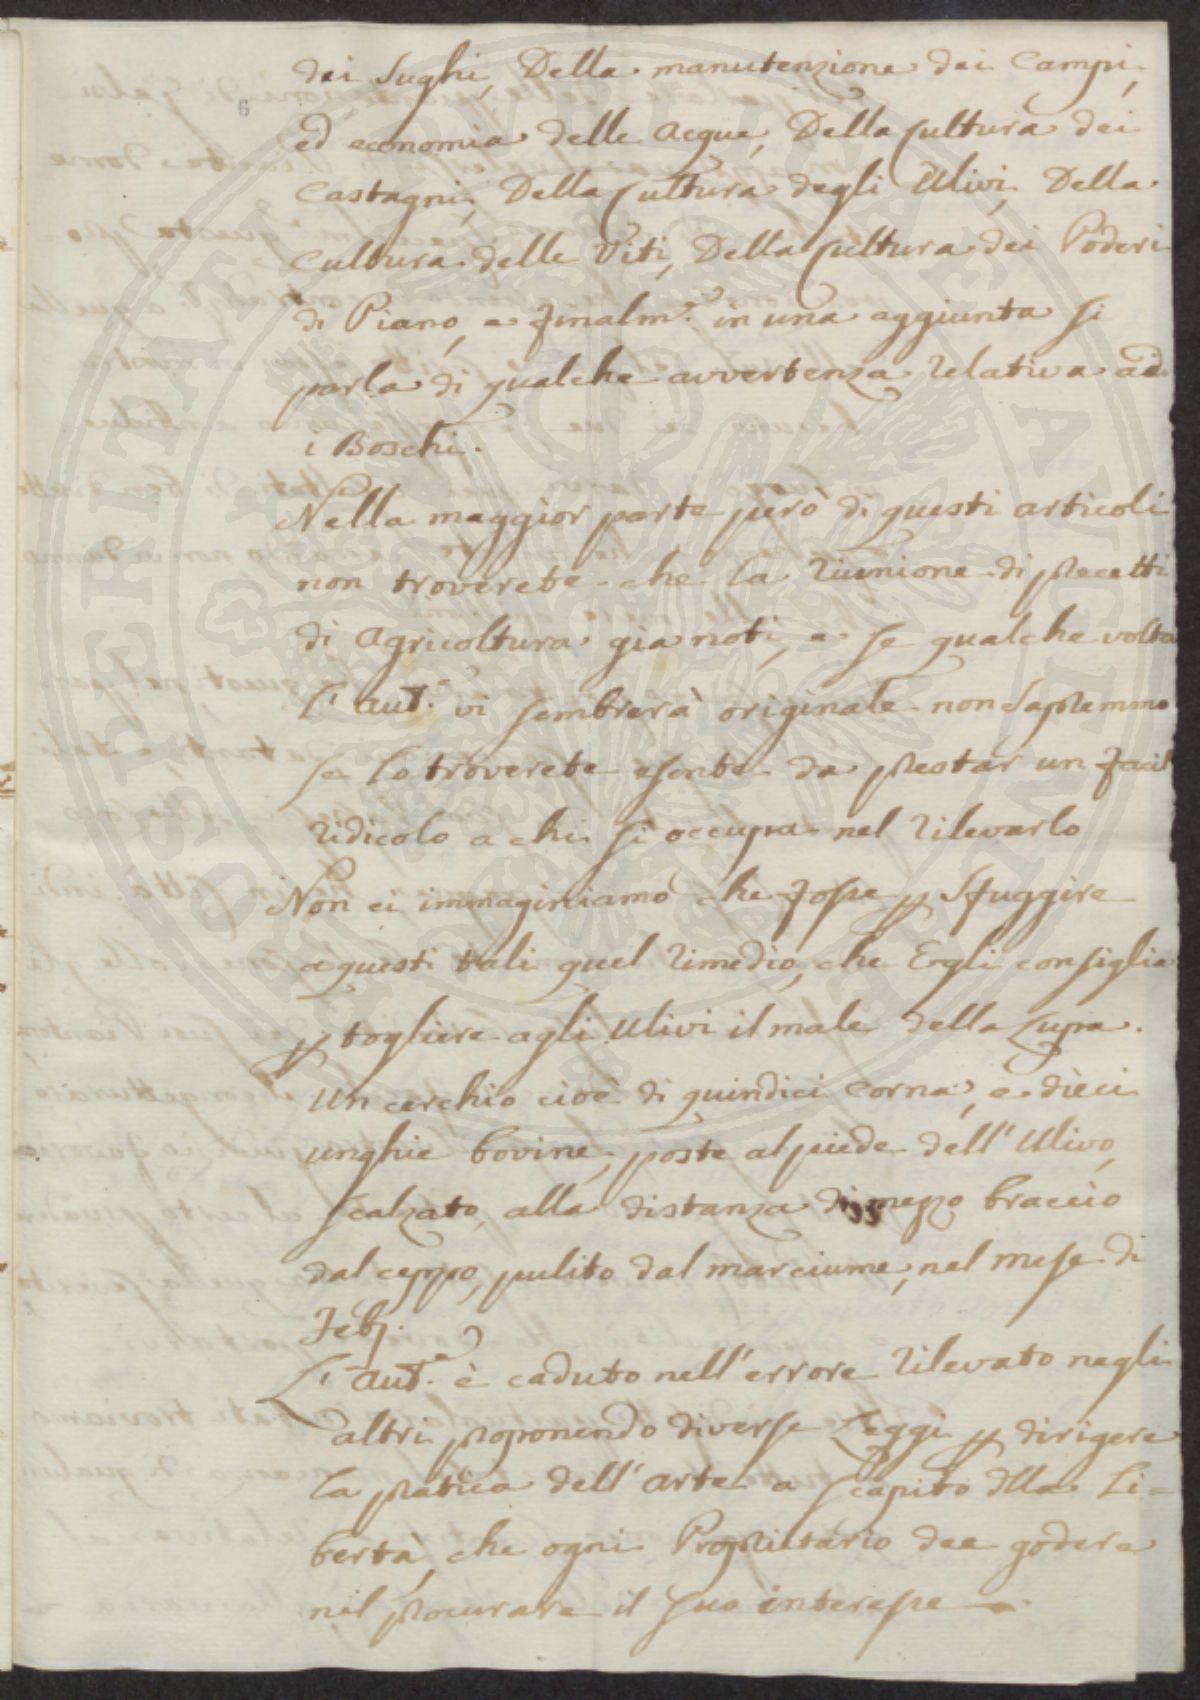 dei Sughi, Della manutenzione dei Campi,
6
ed economia delle Acque, Della Cultura dei
Castagni, Della Cultura degli Ulivi, Della
Cultura delle Viti, Della Cultura dei Poderi
di Piano, e finalm.e in una aggiunta si
parla di qualche avvertenza relativa ad
i Boschi.
Nella maggior parte però di questi articoli
non troverete che la riunione di precetti
di Agricoltura gia noti, e se qualche volta
l' Aut.e vi sembrerà originale non sapremmo
se lo troverete esente da prestar un facil
ridicolo a chi si occupa nel rilevarlo
Non ci immaginiamo che fosse p sfuggire
a questi tali quel rimedio, che Egli consiglia
p togliere agli Ulivi il male della Lupa.
Un cerchio cioè di quindici corna, e dieci
unghie bovine, poste al piede dell' Ulivo,
scalzato, alla distanza di mezzo braccio
dal ceppo, pulito dal marciume, nel mese di
Febj.
L' Aut.e è caduto nell' errore rilevato negli
altri proponendo diverse Leggi p dirigere
la pratica dell' arte a scapito dlla Li=
bertà, che ogni Proprietario dee godere
nel procurare il suo interesse
SPERITATI PUBLICAE AUGENDAE